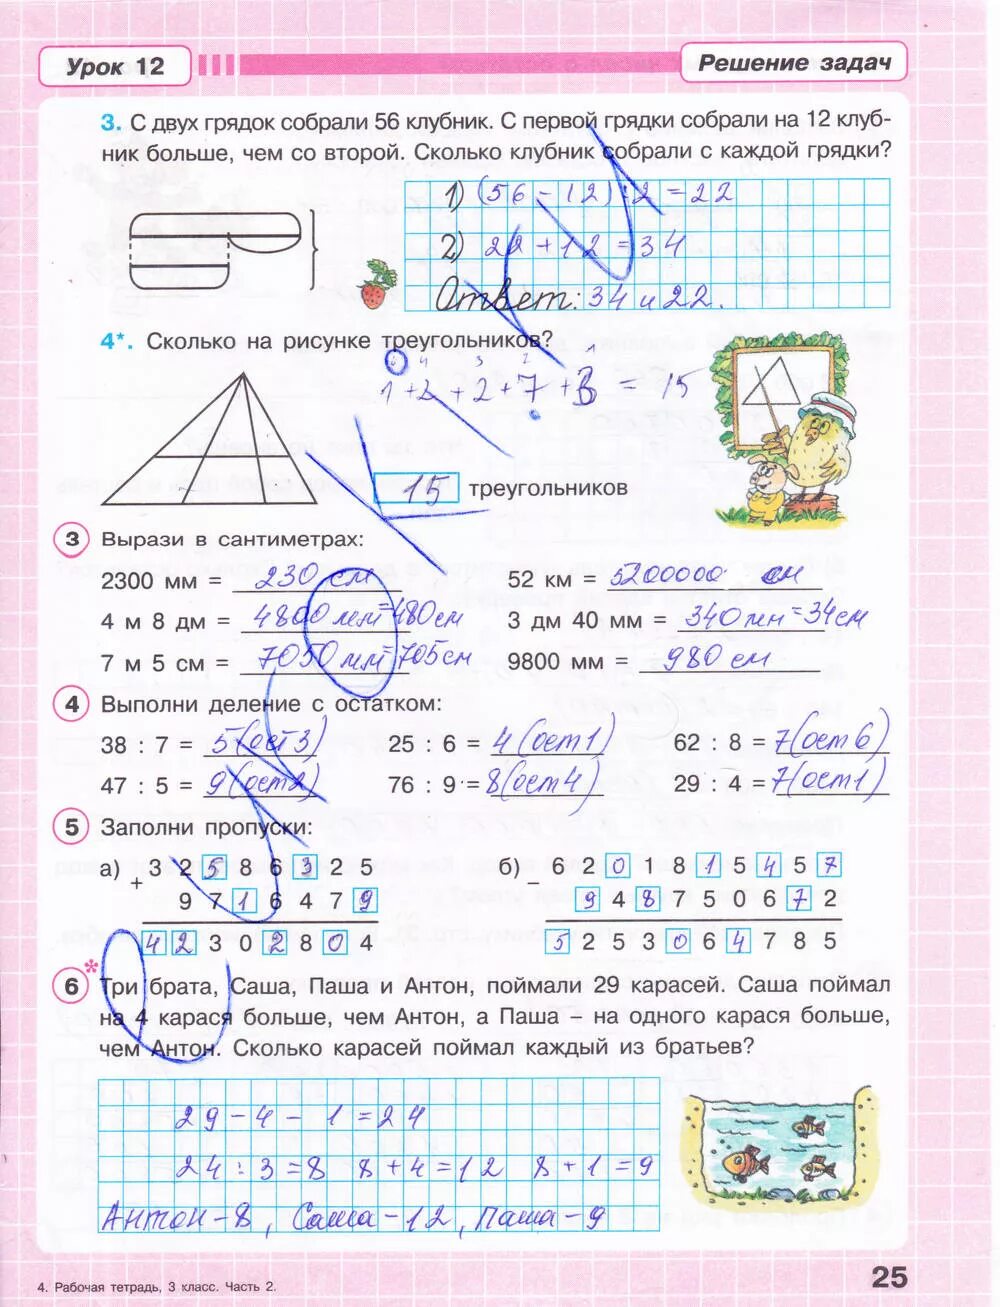 Урок 12
Решение задач
3. С двух грядок собрали 56 клубник. С первой грядки собрали на 12 клуб-
ник больше, чем со второй. Сколько клубник собрали с каждой грядки?
1) (56 - 12) : 2 = 22
2) 22 + 12 = 34
Ответ: 34 и 22.
4*. Сколько на рисунке треугольников?
6 4 3 2 1
1 + 2 + 2 + 7 + 3 = 15
15 треугольников
3 Вырази в сантиметрах:
2300 мм = 230 см 52 км = 5200000 см
4 м 8 дм = 4800 мм = 480 см 3 дм 40 мм = 340 мм = 34 см
7 м 5 см = 7050 мм = 705 см 9800 мм = 980 см
4 Выполни деление с остатком:
38 : 7 = 5 (ост 3) 25 : 6 = 4 (ост 1) 62 : 8 = 7 (ост 6)
47 : 5 = 9 (ост 2) 76 : 9 = 8 (ост 4) 29 : 4 = 7 (ост 1)
5 Заполни пропуски:
а) + 3 2 5 8 6 3 2 5 б) 6 2 0 1 8 1 5 4 5 7
9 7 1 6 4 7 9 9 4 8 7 5 0 6 7 2
4 2 3 0 2 8 0 4 5 2 5 3 0 6 4 7 8 5
6* Три брата, Саша, Паша и Антон, поймали 29 карасей. Саша поймал
на 4 карася больше, чем Антон, а Паша – на одного карася больше,
чем Антон. Сколько карасей поймал каждый из братьев?
29 - 4 - 1 = 24
24 : 3 = 8 8 + 4 = 12 8 + 1 = 9
Антон - 8, Саша - 12, Паша - 9
4. Рабочая тетрадь, 3 класс. Часть 2.
25